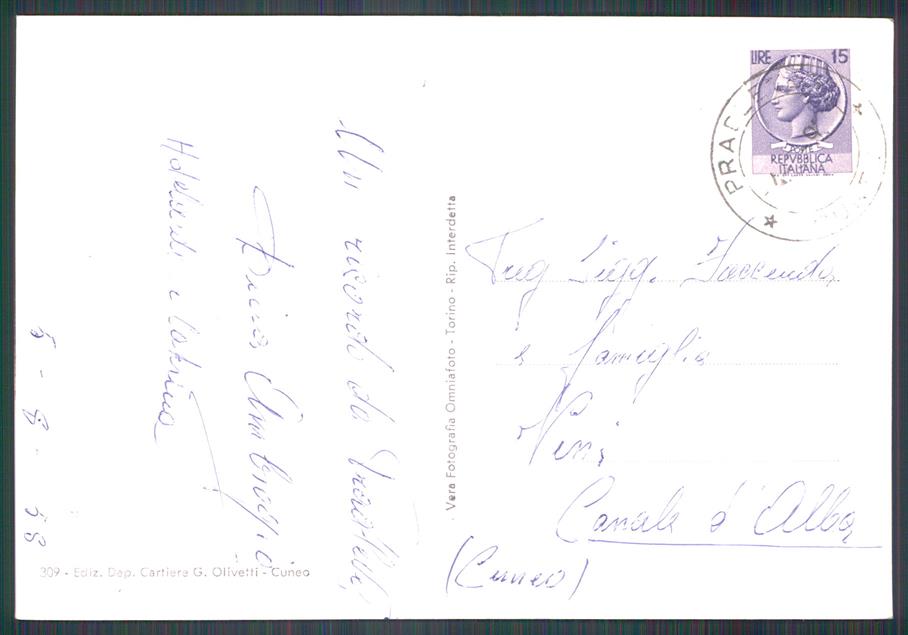 LIRE 15
REPVBBLICA
ITALIANA
PRAD
Un ricordo da
Ambrogio
e
5 - 8 - 58
Vera Fotografia Omniafoto - Torino - Rip. Interdetta
309 - Ediz. Dep. Cartiere G. Olivetti - Cuneo
Sigg. Faccenda
e famiglia
Canale d'Alba
(Cuneo)